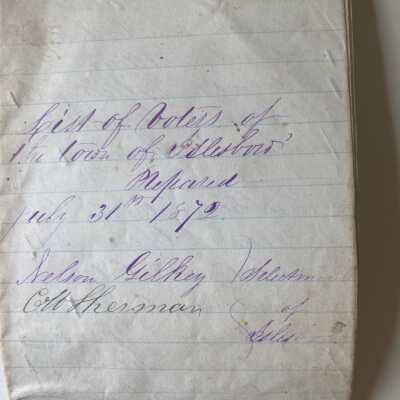 List of Voters of
the town of Islesboro'
Prepared
July 31st 1872
Nelson Gilkey ) Selectmen
C W Sherman ( of